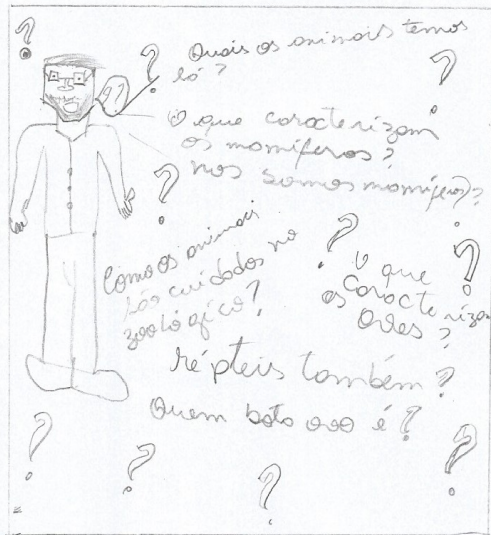 Quais os animais temos
lá?
O que caracterizam
os mamíferos?
nos somos mamíferos?
Como os animais
são cuidados no
zoológico?
O que
os caracterizam
aves?
répteis também?
Quem bota ovo é?